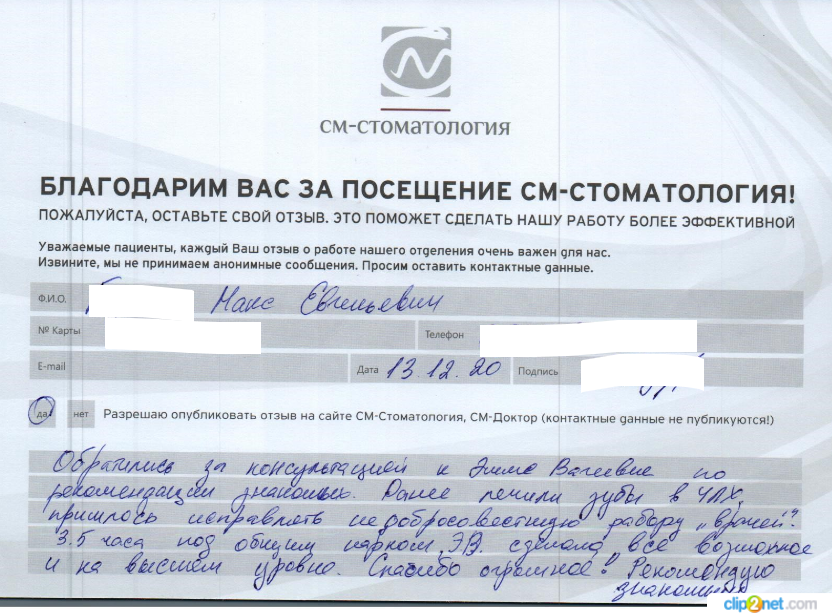 см-стоматология
БЛАГОДАРИМ ВАС ЗА ПОСЕЩЕНИЕ СМ-СТОМАТОЛОГИЯ!
ПОЖАЛУЙСТА, ОСТАВЬТЕ СВОЙ ОТЗЫВ. ЭТО ПОМОЖЕТ СДЕЛАТЬ НАШУ РАБОТУ БОЛЕЕ ЭФФЕКТИВНОЙ
Уважаемые пациенты, каждый Ваш отзыв о работе нашего отделения очень важен для нас.
Извините, мы не принимаем анонимные сообщения. Просим оставить контактные данные.
Ф.И.О. Макс Евгеньевич
№ Карты Телефон
E-mail Дата 13.12.20 Подпись
да нет Разрешаю опубликовать отзыв на сайте СМ-Стоматология, СМ-Доктор (контактные данные не публикуются!)
Обратились за консультацией к Эмме Вагифовне по
рекомендации знакомых. Ранее лечили зубы в ЧЛХ,
пришлось исправлять недобросовестную работу „врачей".
3.5 часа под общим наркозом, Э.В. сделала все возможное
и на высшем уровне. Спасибо огромное! Рекомендую
знакомым
clip2net.com